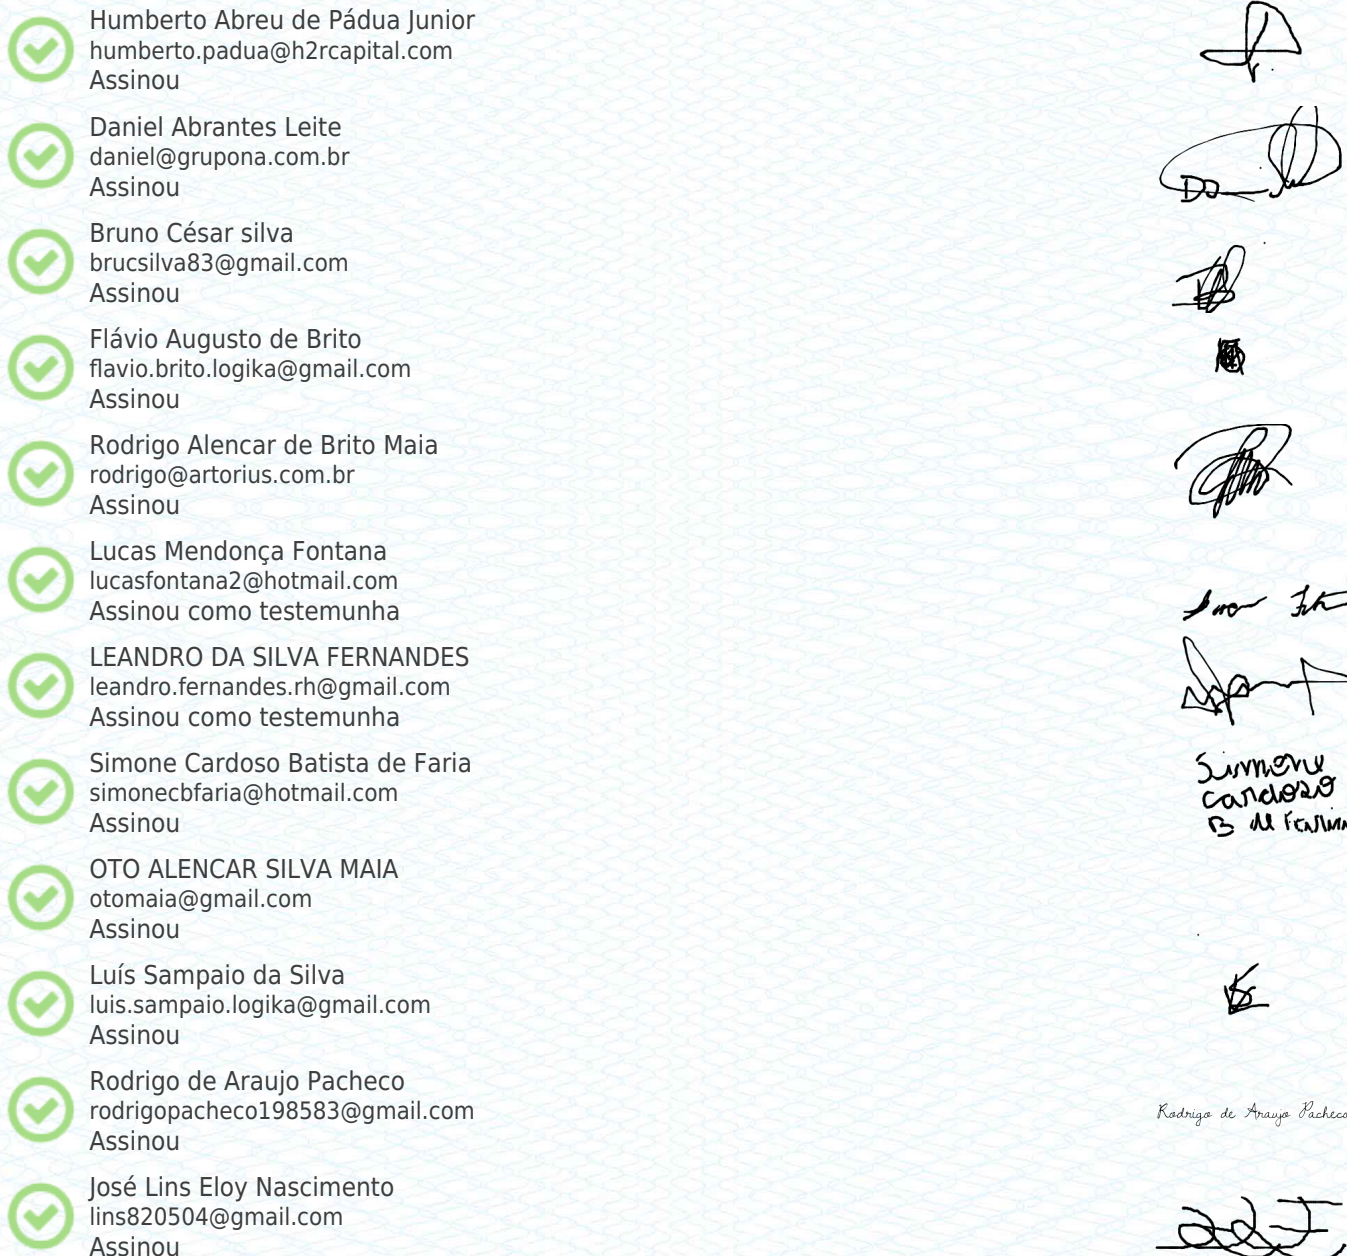 Humberto Abreu de Pádua Junior
humberto.padua@h2rcapital.com
Assinou
Daniel Abrantes Leite
daniel@grupona.com.br
Assinou
Bruno César silva
brucsilva83@gmail.com
Assinou
Flávio Augusto de Brito
flavio.brito.logika@gmail.com
Assinou
Rodrigo Alencar de Brito Maia
rodrigo@artorius.com.br
Assinou
Lucas Mendonça Fontana
lucasfontana2@hotmail.com
Assinou como testemunha
LEANDRO DA SILVA FERNANDES
leandro.fernandes.rh@gmail.com
Assinou como testemunha
Simone Cardoso Batista de Faria
simonecbfaria@hotmail.com
Assinou
Simone
Cardoso
B de
OTO ALENCAR SILVA MAIA
otomaia@gmail.com
Assinou
Luís Sampaio da Silva
luis.sampaio.logika@gmail.com
Assinou
Rodrigo de Araujo Pacheco
rodrigopacheco198583@gmail.com
Assinou
Rodrigo de Araujo Pacheco
José Lins Eloy Nascimento
lins820504@gmail.com
Assinou